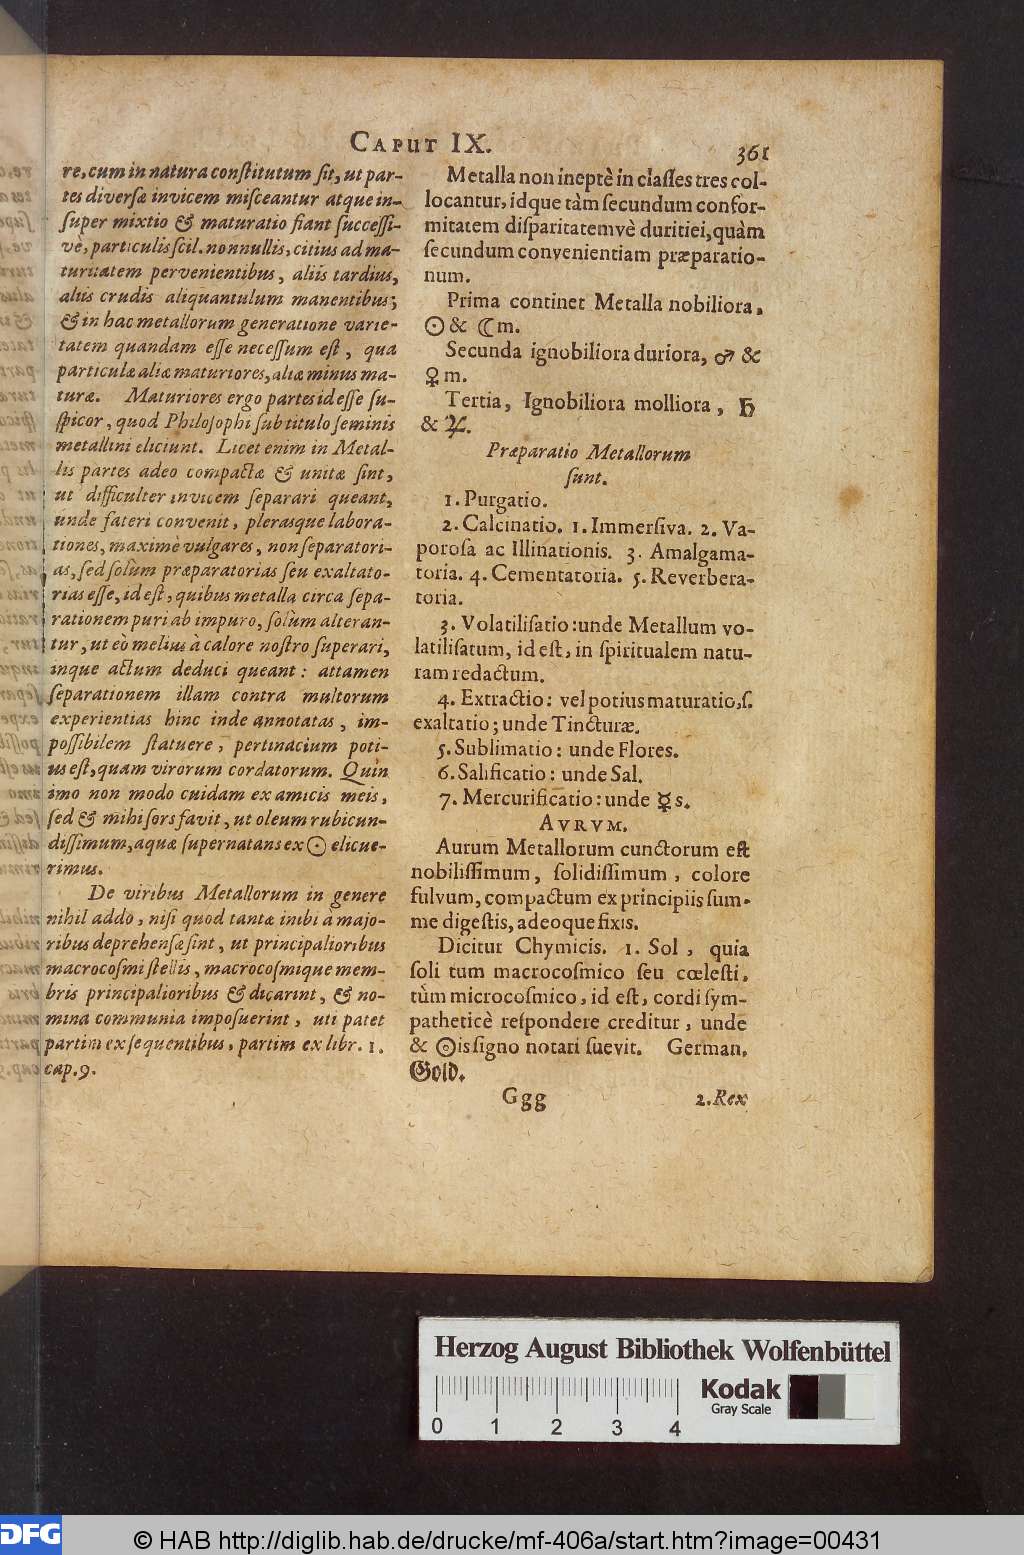 CAPUT IX.
361
re, cum in natura conſtitutum ſit, ut par-
tes diverſæ invicem miſceantur atque in-
ſuper mixtio & maturatio fiant ſucceſſi-
vè, particulis ſcil. nonnullis, citius ad ma-
turitatem pervenientibus, aliis tardius,
aliis crudis aliquantulum manentibus;
& in hac metallorum generatione varie-
tatem quandam eſſe neceſſum eſt, qua
particulæ aliæ maturiores, aliæ minus ma-
turæ. Maturiores ergo partes id eſſe ſu-
ſpicor, quod Philoſophi ſub titulo ſeminis
metallini eliciunt. Licet enim in Metal-
lis partes adeo compactæ & unitæ ſint,
ut difficulter invicem ſeparari queant,
unde fateri convenit, plerasque labora-
tiones, maximè vulgares, non ſeparatori-
as, ſed ſolùm præparatorias ſeu exaltato-
rias eſſe, id eſt, quibus metalla circa ſepa-
rationem puri ab impuro, ſolùm alteran-
tur, ut eò melius à calore noſtro ſuperari,
inque actum deduci queant: attamen
ſeparationem illam contra multorum
experientias hinc inde annotatas, im-
poſſibilem ſtatuere, pertinacium poti-
us eſt, quam virorum cordatorum. Quin
imo non modo cuidam ex amicis meis,
ſed & mihi ſors favit, ut oleum rubicun-
diſſimum, aquæ ſupernatans ex ☉ elicue-
rimus.
De viribus Metallorum in genere
nihil addo, niſi quod tantæ inibi à majo-
ribus deprehenſæ ſint, ut principalioribus
macrocoſmi ſtellis, macrocoſmique mem-
bris principalioribus & dicarint, & no-
mina communia impoſuerint, uti patet
partim ex ſequentibus, partim ex libr. 1.
cap. 9.
Metalla non ineptè in claſſes tres col-
locantur, idque tàm ſecundum confor-
mitatem diſparitatemvè duritiei, quàm
ſecundum convenientiam præparatio-
num.
Prima continet Metalla nobiliora,
☉ & ☾m.
Secunda ignobiliora duriora, ♂ &
♀m.
Tertia, Ignobiliora molliora, ♄
& ♃.
Præparatio Metallorum
ſunt.
1. Purgatio.
2. Calcinatio. 1. Immerſiva. 2. Va-
poroſa ac Illinationis. 3. Amalgama-
toria. 4. Cementatoria. 5. Reverbera-
toria.
3. Volatiliſatio: unde Metallum vo-
latiliſatum, id eſt, in ſpiritualem natu-
ram redactum.
4. Extractio: vel potius maturatio, ſ.
exaltatio; unde Tincturæ.
5. Sublimatio: unde Flores.
6. Salificatio: unde Sal.
7. Mercurificatio: unde ☿s.
AVRVM.
Aurum Metallorum cunctorum eſt
nobiliſſimum, ſolidiſſimum, colore
fulvum, compactum ex principiis ſum-
me digeſtis, adeoque fixis.
Dicitur Chymicis. 1. Sol, quia
ſoli tum macrocoſmico ſeu cœleſti,
tùm microcoſmico, id eſt, cordi ſym-
patheticè reſpondere creditur, unde
& ☉is ſigno notari ſuevit. German.
Gold.
Ggg
2. Rex
Herzog August Bibliothek Wolfenbüttel
0 1 2 3 4
Kodak
Gray Scale
DFG
© HAB http://diglib.hab.de/drucke/mf-406a/start.htm?image=00431